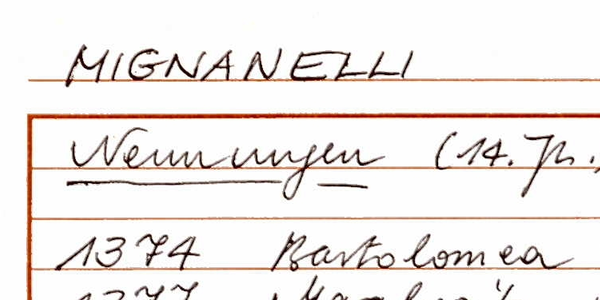 MIGNANELLI
Nennungen (14. Jh.,
1374 Bartolomea
1377